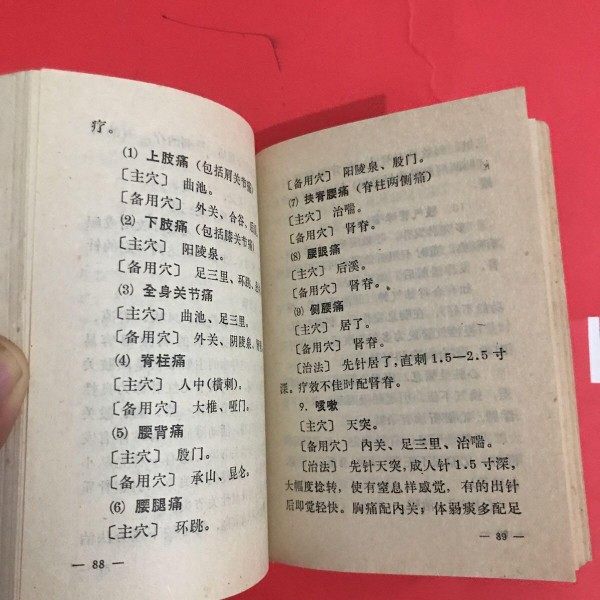 疗。
⑴ 上肢痛（包括肩关节痛）
〔主穴〕 曲池。
〔备用穴〕 外关、合谷、
⑵ 下肢痛（包括膝关节痛）
〔主穴〕 阳陵泉。
〔备用穴〕 足三里、环跳、
(3) 全身关节痛
〔主穴〕 曲池、足三里。
〔备用穴〕 外关、阴陵泉、
(4) 脊柱痛
〔主穴〕 人中(横刺)。
〔备用穴〕 大椎、哑门。
(5) 腰背痛
〔主穴〕 殷门。
〔备用穴〕 承山、昆仑。
(6) 腰腿痛
〔主穴〕 环跳。
— 88 —
〔备用穴〕 阳陵泉、殷门。
⑺ 挟脊腰痛（脊柱两侧痛）
〔主穴〕 治喘。
〔备用穴〕 肾脊。
⑻ 腰眼痛
〔主穴〕 后溪。
〔备用穴〕 肾脊。
⑼ 侧腰痛
〔主穴〕 居了。
〔备用穴〕 肾脊。
〔治法〕 先针居了,直刺1.5—2.5寸
深。疗效不佳时配肾脊。
9. 咳嗽
〔主穴〕 天突。
〔备用穴〕 内关、足三里、治喘。
〔治法〕 先针天突,成人针1.5寸深,
大幅度捻转，使有窒息样感觉，有的出针
后即觉轻快。胸痛配内关；体弱痰多配足
— 89 —